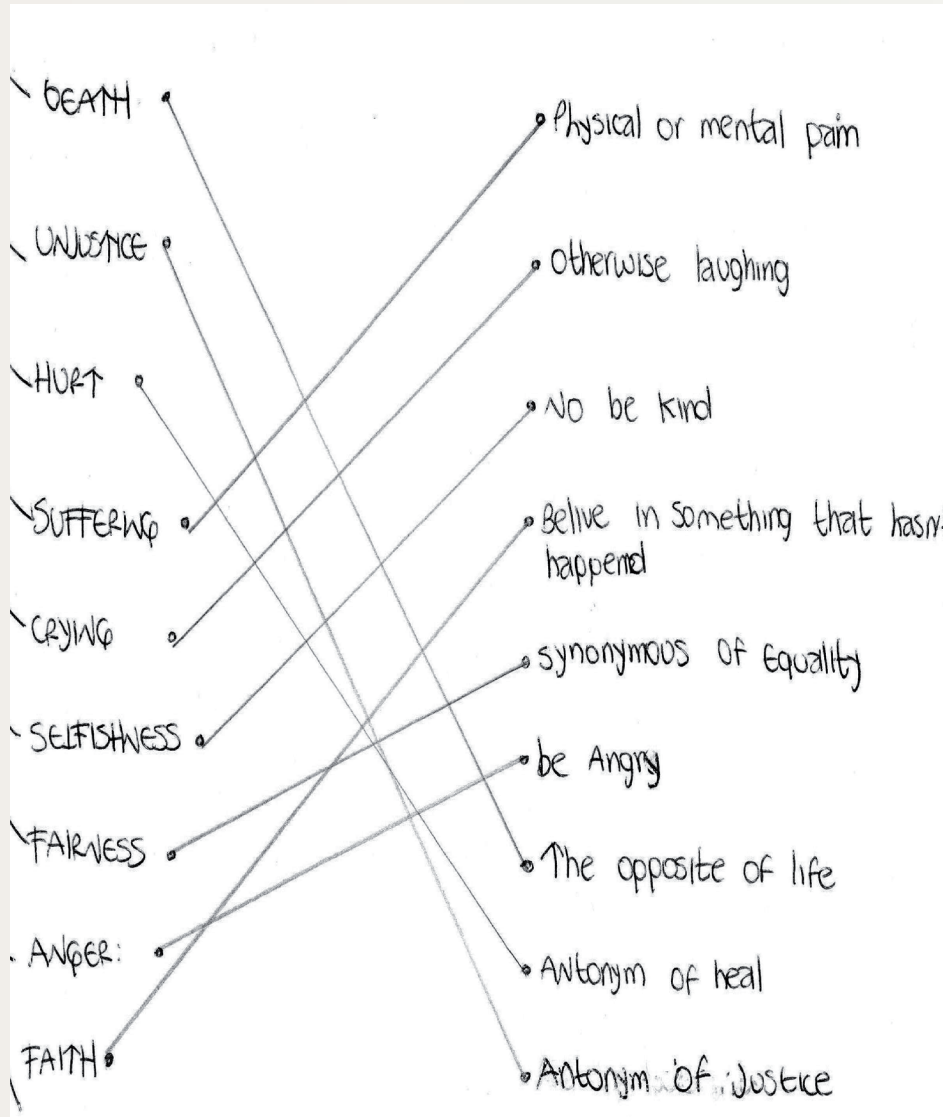 DEATH
UNJUSTICE
HURT
SUFFERING
CRYING
SELFISHNESS
FAIRNESS
ANGER:
FAITH
Physical or mental pain
otherwise laughing
No be kind
Belive in something that hasn
happend
synonymous of Equality
be Angry
The opposite of life
Antonym of heal
Antonym of Justice